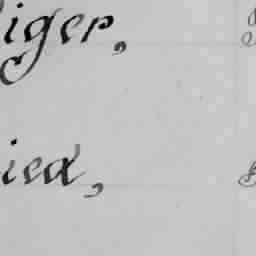 iger,
ied,